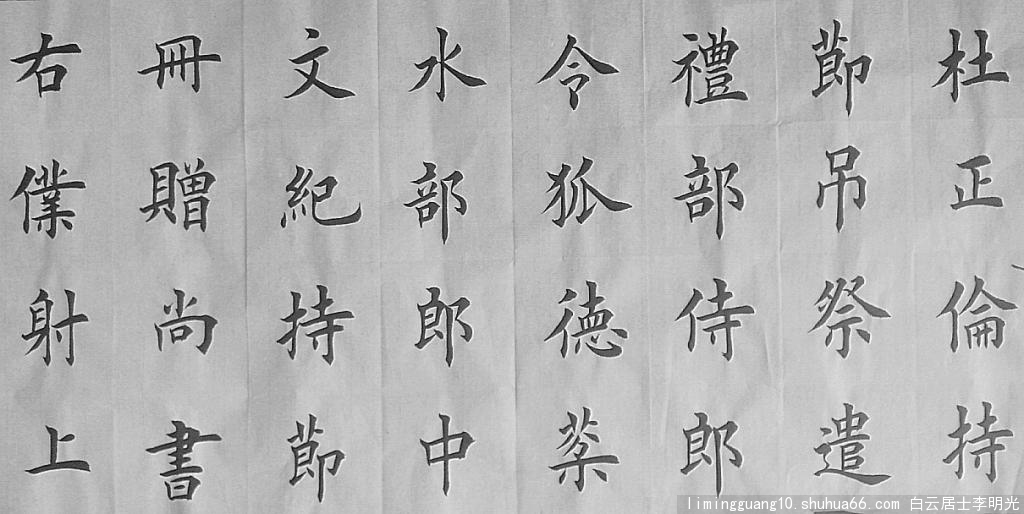 杜正倫持
莭吊祭遣
禮部侍郎
令狐徳棻
水部郎中
文紀持莭
冊贈尚書
右僕射上
limingguang10.shuhua66.com 白云居士李明光